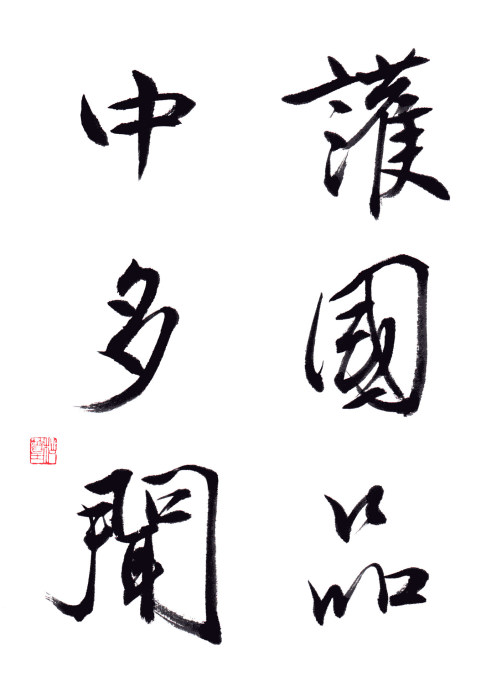 護國品
中多聞